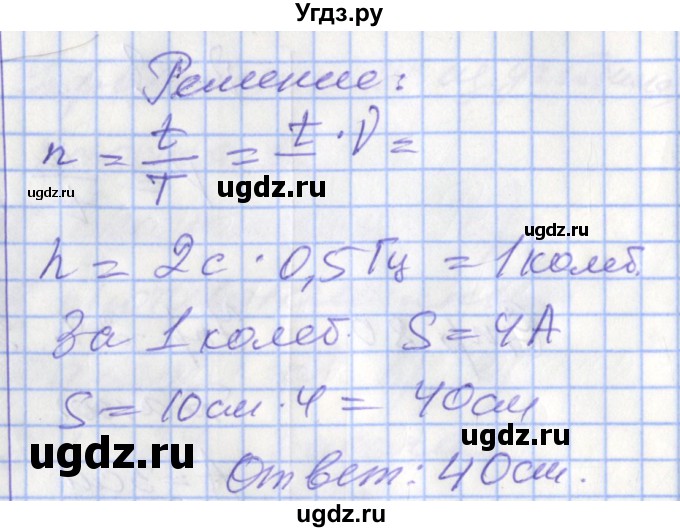 Угдз.ру
Решение:
n = t/T = t · ν =
ugdz.ru ugdz.ru ugdz.ru
n = 2с · 0,5Гц = 1 колеб.
За 1 колеб. S = 4А
S = 10см · 4 = 40см
ugdz.ru ugdz.ru
Ответ: 40см.
ugdz.ru